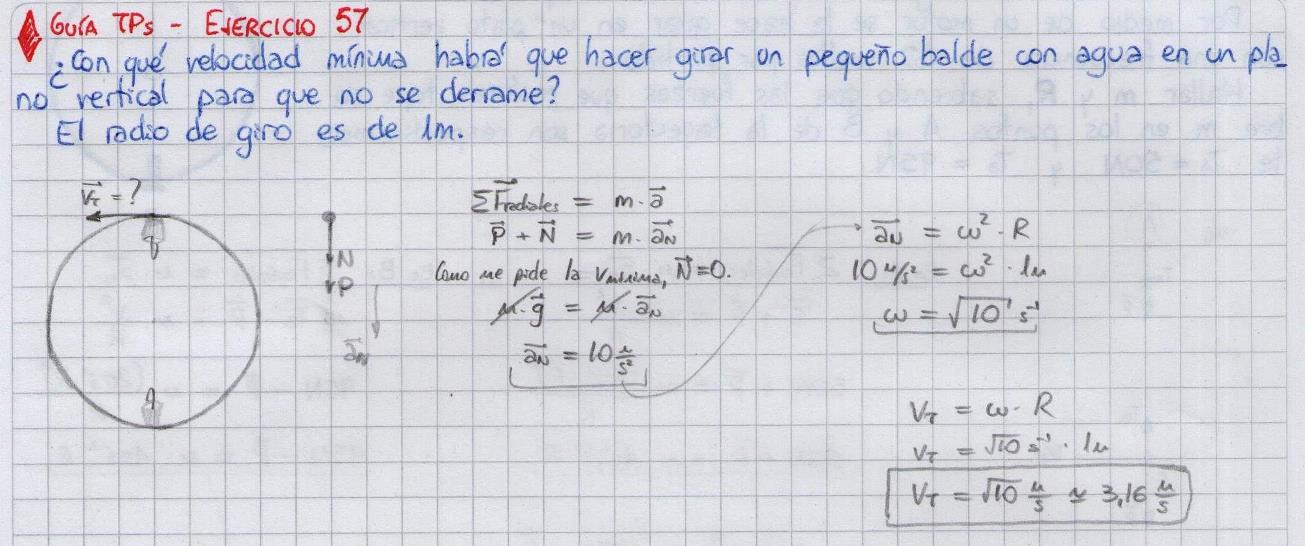 GUÍA TPs - EJERCICIO 57
¿Con qué velocidad mínima habrá que hacer girar un pequeño balde con agua en un pla_
no vertical para que no se derrame?
El radio de giro es de 1m.
V⃗T = ?
N
P
a⃗N
ΣF⃗radiales = m · a⃗
P⃗ + N⃗ = m · a⃗N
Como me pide la Vmínima, N⃗ = 0.
m · g⃗ = m · a⃗N
a⃗N = 10 m/s²
a⃗N = ω² · R
10 m/s² = ω² · 1m
ω = √10 s⁻¹
VT = ω · R
VT = √10 s⁻¹ · 1m
VT = √10 m/s ≃ 3,16 m/s